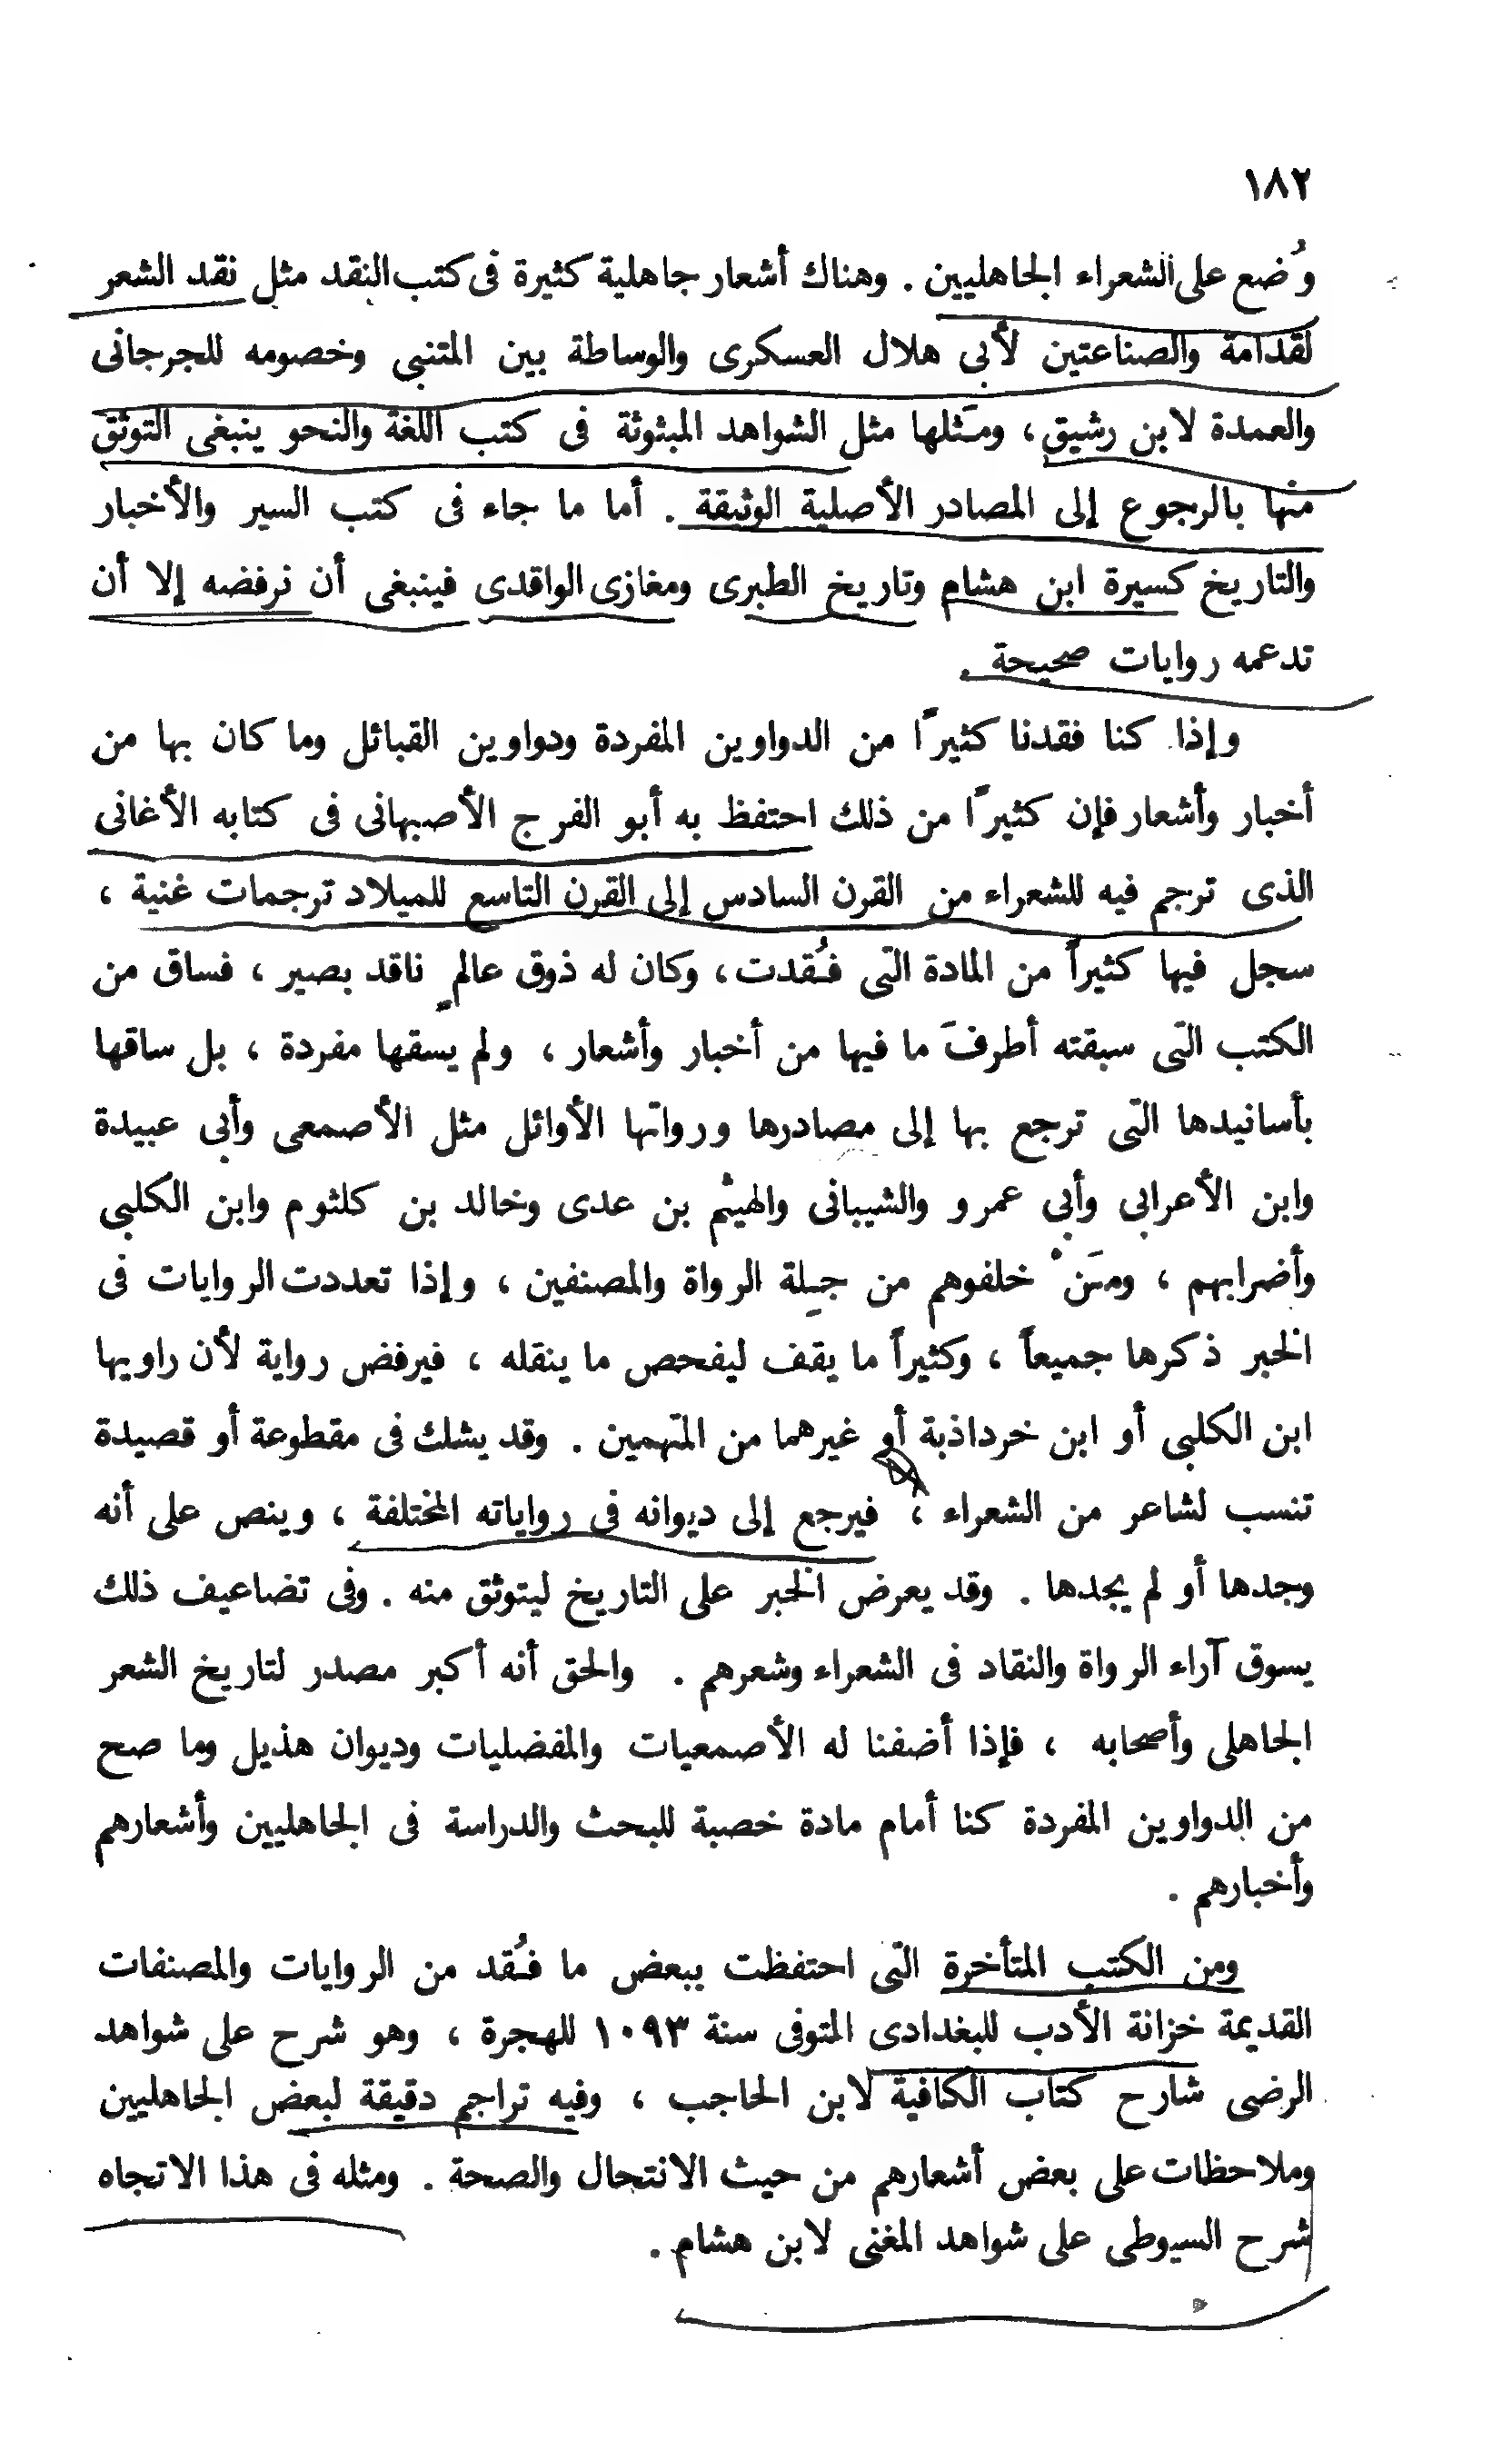 ١٨٢
وُضع على الشعراء الجاهليين . وهناك أشعار جاهلية كثيرة فى كتب النقد مثل نقد الشعر
لقدامة والصناعتين لأبى هلال العسكرى والوساطة بين المتنبى وخصومه للجرجانى
والعمدة لابن رشيق ، ومَثلها مثل الشواهد المبثوثة فى كتب اللغة والنحو ينبغى التوثق
منها بالرجوع إلى المصادر الأصلية الوثيقة . أما ما جاء فى كتب السير والأخبار
والتاريخ كسيرة ابن هشام وتاريخ الطبرى ومغازى الواقدى فينبغى أن نرفضه إلا أن
تدعمه روايات صحيحة .
وإذا كنا فقدنا كثيراً من الدواوين المفردة ودواوين القبائل وما كان بها من
أخبار وأشعار فإن كثيراً من ذلك احتفظ به أبو الفرج الأصبهانى فى كتابه الأغانى
الذى ترجم فيه للشعراء من القرن السادس إلى القرن التاسع للميلاد ترجمات غنية ،
سجل فيها كثيراً من المادة التى فُقدت ، وكان له ذوق عالمٍ ناقد بصير ، فساق من
الكتب التى سبقته أطرفَ ما فيها من أخبار وأشعار ، ولم يسقها مفردة ، بل ساقها
بأسانيدها التى ترجع بها إلى مصادرها ورواتها الأوائل مثل الأصمعى وأبى عبيدة
وابن الأعرابى وأبى عمرو والشيبانى والهيثم بن عدى وخالد بن كلثوم وابن الكلبى
وأضرابهم ، ومَنْ خلفوهم من جِلة الرواة والمصنفين ، وإذا تعددت الروايات فى
الخبر ذكرها جميعاً ، وكثيراً ما يقف ليفحص ما ينقله ، فيرفض رواية لأن راويها
ابن الكلبى أو ابن خرداذبة أو غيرهما من المتهمين . وقد يشك فى مقطوعة أو قصيدة
تنسب لشاعر من الشعراء ، فيرجع إلى ديوانه فى رواياته المختلفة ، وينص على أنه
وجدها أو لم يجدها . وقد يعرض الخبر على التاريخ ليتوثق منه . وفى تضاعيف ذلك
يسوق آراء الرواة والنقاد فى الشعراء وشعرهم . والحق أنه أكبر مصدر لتاريخ الشعر
الجاهلى وأصحابه ، فإذا أضفنا له الأصمعيات والمفضليات وديوان هذيل وما صح
من الدواوين المفردة كنا أمام مادة خصبة للبحث والدراسة فى الجاهليين وأشعارهم
وأخبارهم .
ومن الكتب المتأخرة التى احتفظت ببعض ما فُقد من الروايات والمصنفات
القديمة خزانة الأدب للبغدادى المتوفى سنة ١٠٩٣ للهجرة ، وهو شرح على شواهد
الرضى شارح كتاب الكافية لابن الحاجب ، وفيه تراجم دقيقة لبعض الجاهليين
وملاحظات على بعض أشعارهم من حيث الانتحال والصحة . ومثله فى هذا الاتجاه
شرح السيوطى على شواهد المغنى لابن هشام .